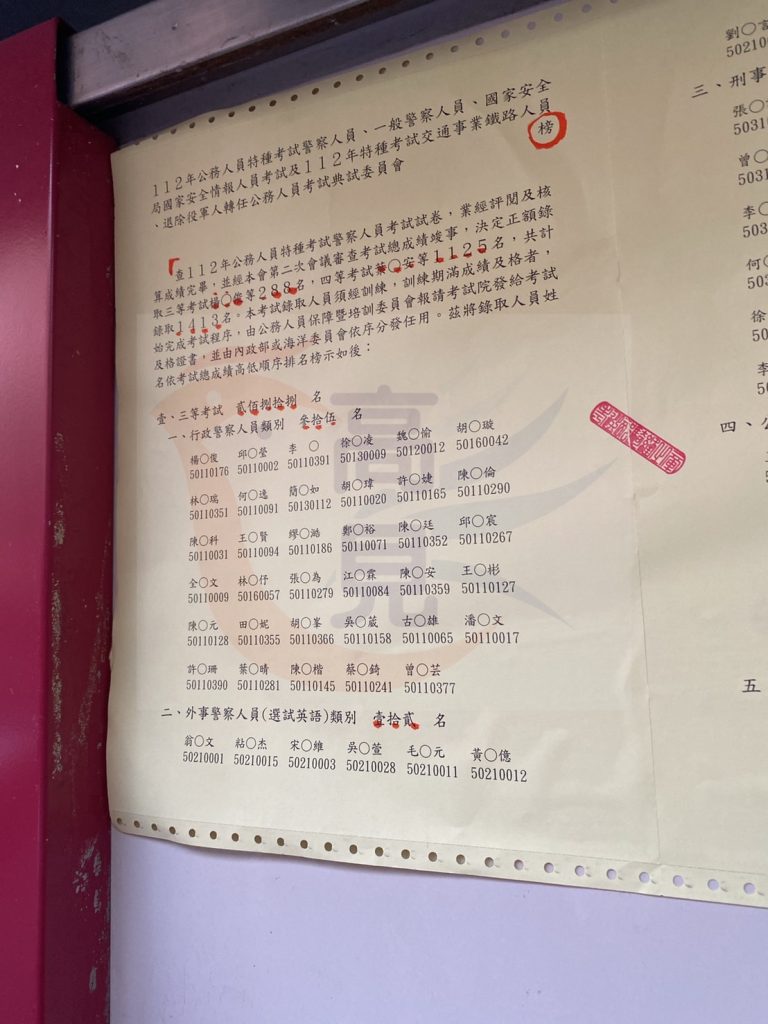 112年公務人員特種考試警察人員、一般警察人員、國家安全
局國家安全情報人員考試及112年特種考試交通事業鐵路人員
、退除役軍人轉任公務人員考試典試委員會
榜
查112年公務人員特種考試警察人員考試試卷,業經評閱及核
算成績完畢,並經本會第二次會議審查考試總成績竣事,決定正額錄
取三等考試楊○俊等288名,四等考試葉○安等1125名,共計
錄取1413名。本考試錄取人員須經訓練,訓練期滿成績及格者,
始完成考試程序,由公務人員保障暨培訓委員會報請考試院發給考試
及格證書,並由內政部或海洋委員會依序分發任用。茲將錄取人員姓
名依考試總成績高低順序排名榜示如後:
壹、三等考試 貳佰捌拾捌 名
一、行政警察人員類別 參拾伍 名
楊○俊 邱○瑩 李 ○ 徐○凌 魏○愉 胡○璇
50110176 50110002 50110391 50130009 50120012 50160042
林○瑞 何○逸 簡○如 胡○瑋 許○婕 陳○倫
50110351 50110091 50130112 50110020 50110165 50110290
陳○科 王○賢 繆○澔 鄭○裕 陳○廷 邱○宸
50110031 50110094 50110186 50110071 50110352 50110267
全○文 林○伃 張○為 江○霖 陳○安 王○彬
50110009 50160057 50110279 50110084 50110359 50110127
陳○元 田○妮 胡○峯 吳○葳 古○雄 潘○文
50110128 50110355 50110366 50110158 50110065 50110017
許○珊 葉○晴 陳○楷 蔡○錡 曾○芸
50110390 50110281 50110145 50110241 50110377
二、外事警察人員(選試英語)類別 壹拾貳 名
翁○文 粘○杰 宋○維 吳○萱 毛○元 黃○億
50210001 50210015 50210003 50210028 50210011 50210012
高見
劉○
50210
三、刑事
張○
5031
曾○
503
李○
503
何○
50
徐
50
李
50
四、
五